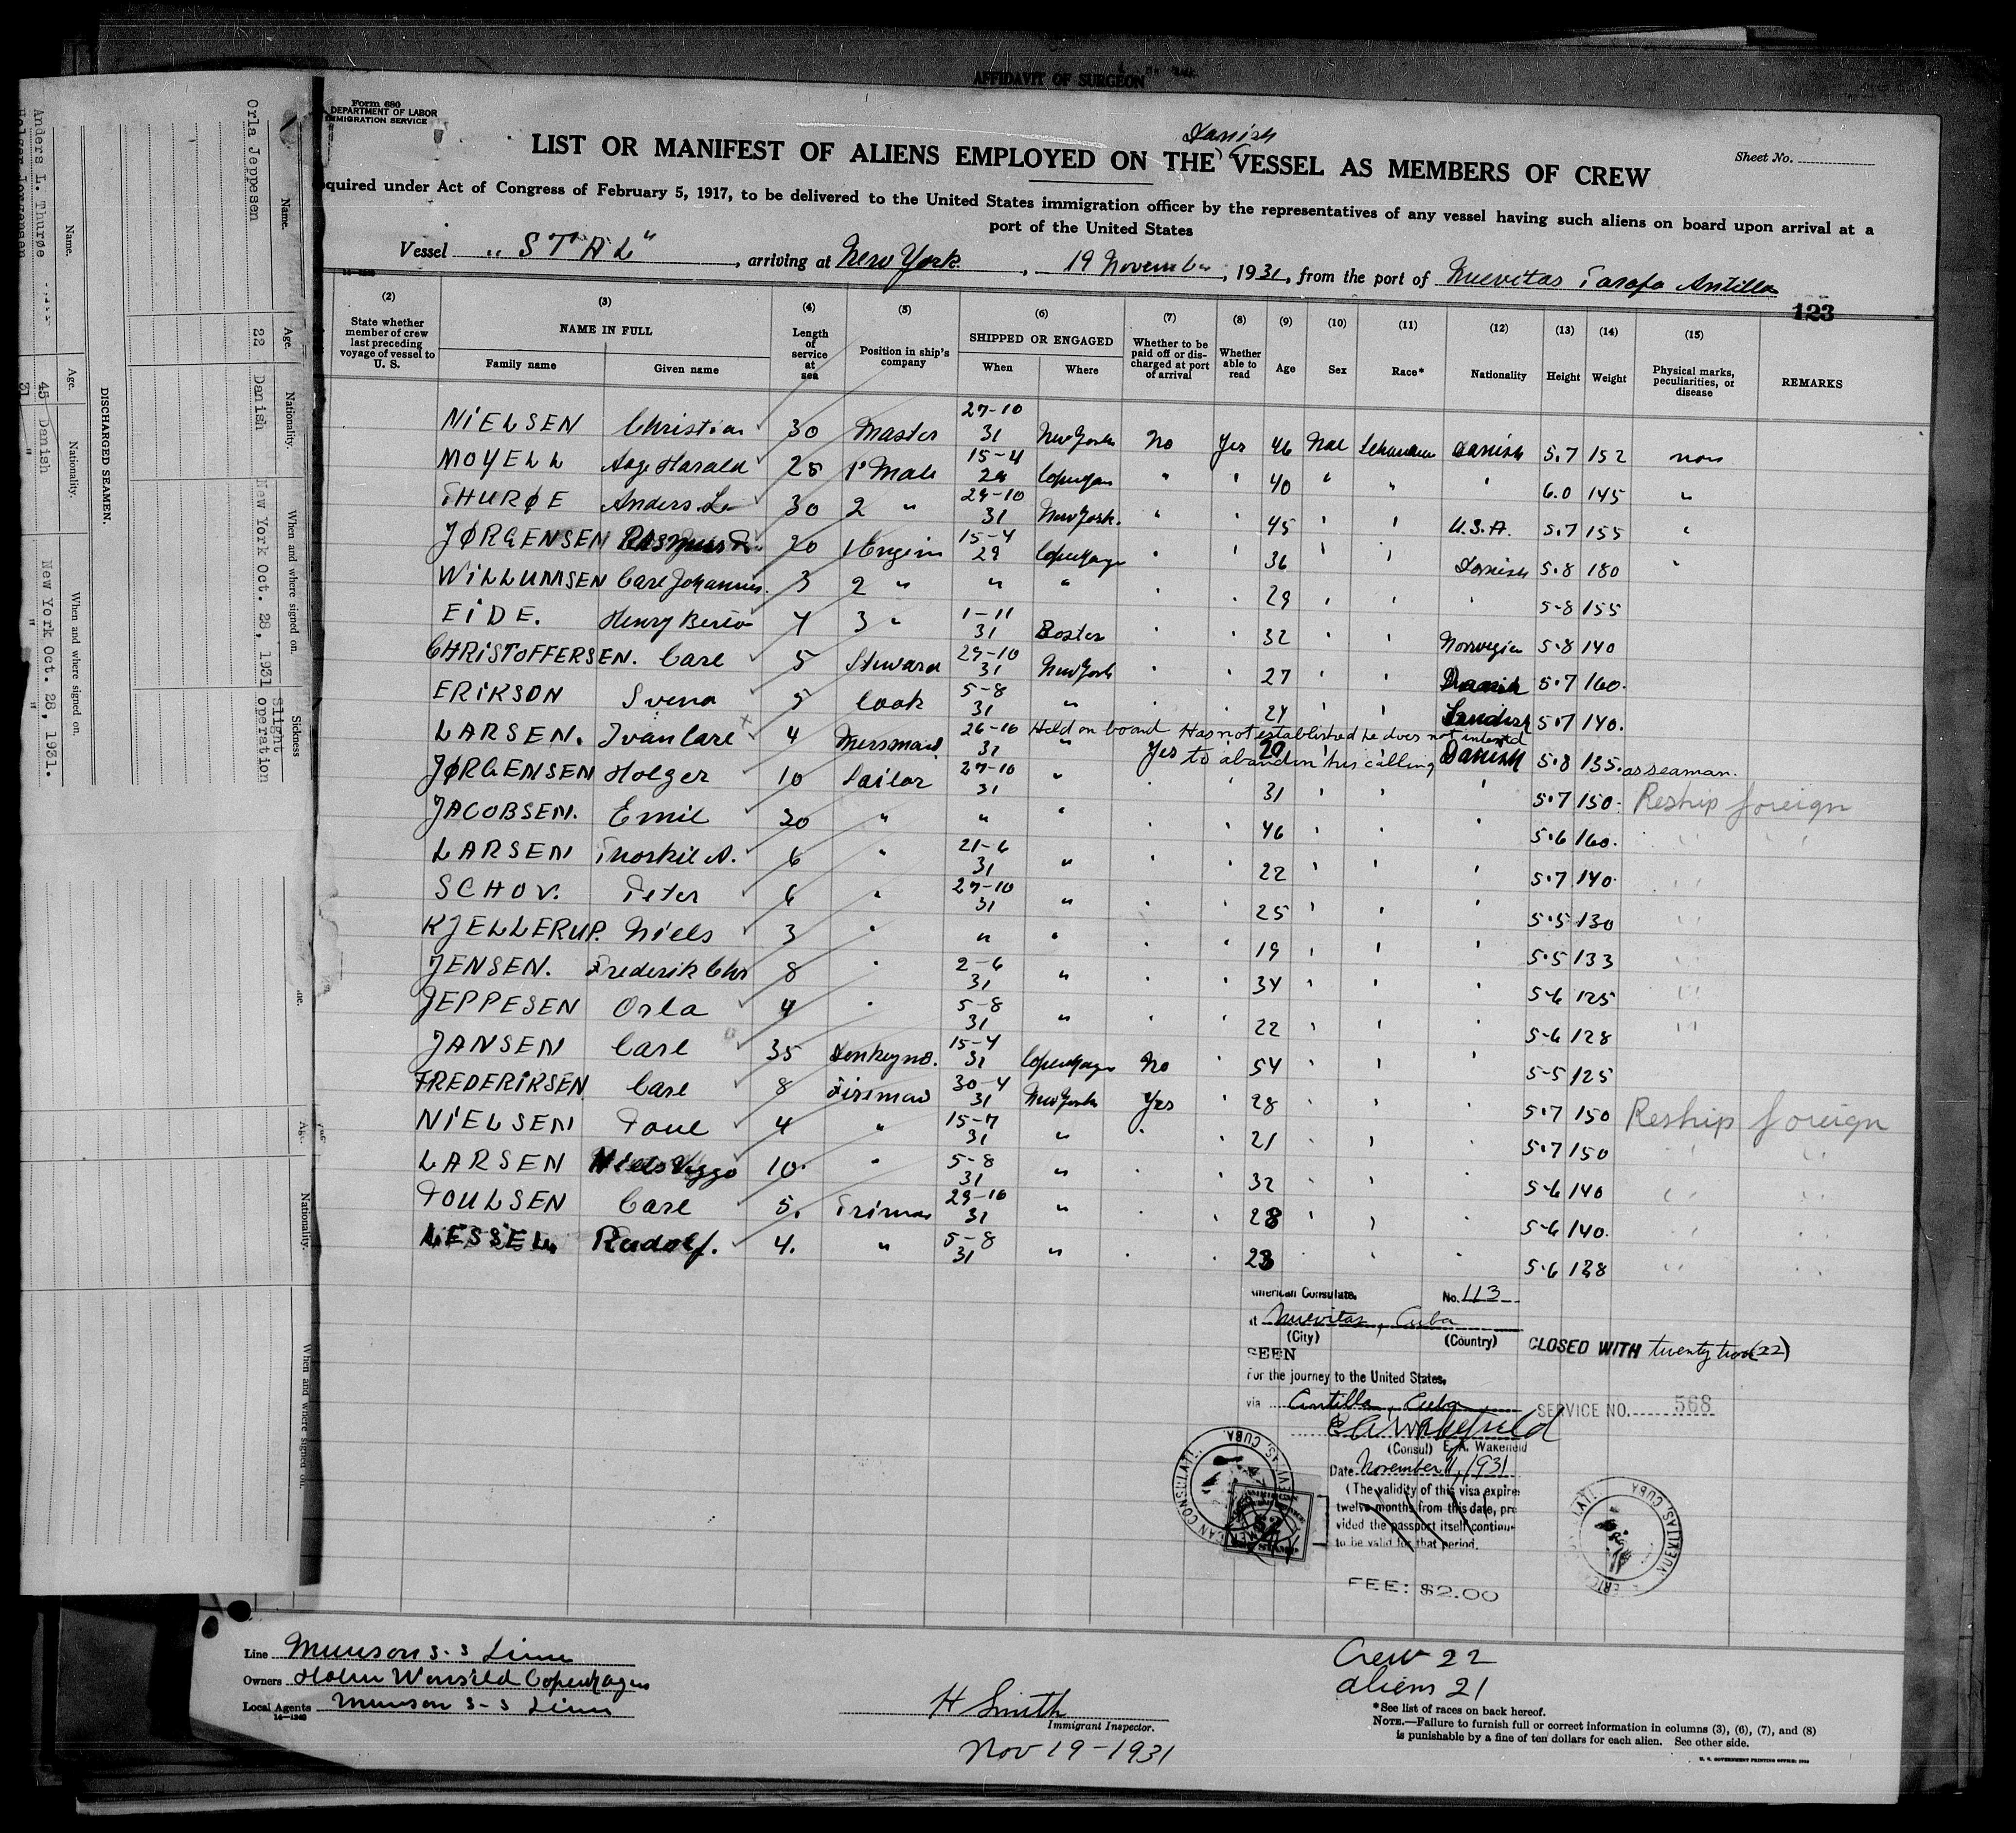 AFFIDAVIT OF SURGEON
Form 680
DEPARTMENT OF LABOR
IMMIGRATION SERVICE
Danish
LIST OR MANIFEST OF ALIENS EMPLOYED ON THE VESSEL AS MEMBERS OF CREW
Sheet No.
quired under Act of Congress of February 5, 1917, to be delivered to the United States immigration officer by the representatives of any vessel having such aliens on board upon arrival at a
port of the United States
Vessel "STAL", arriving at New York, 19 November, 1931, from the port of Nuevitas Tarafa Antilla
123
(2) (3) (4) (5) (6) (7) (8) (9) (10) (11) (12) (13) (14) (15)
State whether member of crew last preceding voyage of vessel to U. S.
NAME IN FULL
Family name Given name
Length of service at sea
Position in ship's company
SHIPPED OR ENGAGED
When Where
Whether to be paid off or discharged at port of arrival
Whether able to read
Age Sex Race* Nationality Height Weight
Physical marks, peculiarities, or disease
REMARKS
NIELSEN Christian 30 Master 27-10 31 New York No Yes 46 Danish 5.7 152
MOYELL Aage Harald 25 " 15-4 29 " ' 40 " " ' 6.0 145 "
THURØE Anders L. 30 2 " 29-10 31 New York. " ' 45 ' ' U.S.A. 5.7 155 "
JØRGENSEN Rasmus 20 15-4 29 Copenhagen ' ' 36 ' ' Danish 5.8 180 "
WILLUMSEN Carl Johannes. 3 2 " " " ' ' 29 ' ' ' 5-8 155
EIDE. Henry 4 3 " 1-11 31 ' ' 32 ' ' Norwegian 5-8 140
CHRISTOFFERSEN. Carl 5 Steward 29-10 31 New York ' ' 27 ' ' Danish 5.7 160.
ERIKSON Svend 5 Cook 5-8 31 " ' ' 24 ' ' 5.7 140.
Held on board Has not established he does not intend
LARSEN. Ivan Carl 4 Messman 26-10 31 " Yes 20 Danish 5.8 135.
to abandon his calling as seaman.
JØRGENSEN Holger 10 Sailor 27-10 31 " ' ' 31 ' ' ' 5.7 150. Reship foreign
JACOBSEN. Emil 30 " " " ' ' 46 ' ' ' 5.6 160.
LARSEN Thorkil A. 6 " 21-6 31 " ' ' 22 ' ' ' 5.7 140.
SCHOV. Peter 6 " 27-10 31 " ' ' 25 ' ' ' 5.5 130
KJELLERUP. Niels 3 " " " ' ' 19 ' ' ' 5.5 133
JENSEN. Frederik Chr 8 " 2-6 31 " ' ' 34 ' ' ' 5-6 125
JEPPESEN Orla 4 " 5-8 31 " ' ' 22 ' ' ' 5-6 128
JANSEN Carl 35 Donkeyman. 15-4 31 Copenhagen No ' 54 ' ' ' 5-5 125
FREDERIKSEN Carl 8 Fireman 30-4 31 New York Yes ' 28 ' ' ' 5.7 150 Reship foreign
NIELSEN Poul 4 " 15-7 31 " ' ' 21 ' ' ' 5.7 150
LARSEN Niels Viggo 10 " 5-8 31 " ' ' 32 ' ' ' 5-6 140
POULSEN Carl 5. 29-10 31 " ' ' 28 ' ' ' 5-6 140.
LESSEL Rudolf. 4. " 5-8 31 " ' ' 23 ' ' ' 5.6 138
American Consulate, No. 113
at Nuevitas, Cuba
(City) (Country)
CLOSED WITH twenty two (22)
SEEN
For the journey to the United States,
via Antilla, Cuba
SERVICE NO. 568
E. A. Wakefield
(Consul) E. A. Wakefield
Date November 11, 1931
(The validity of this visa expires
twelve months from this date, pro
vided the passport itself continues
to be valid for that period.
FEE: $2.00
AMERICAN CONSULATE NUEVITAS, CUBA.
$2
NUEVITAS, CUBA
Line Munson S-S Line
Owners Holm Wonsild Copenhagen
Local Agents Munson S-S Line
14—1240
H Smith
Immigrant Inspector.
Nov 19-1931
Crew 22
aliens 21
*See list of races on back hereof.
NOTE.—Failure to furnish full or correct information in columns (3), (6), (7), and (8)
is punishable by a fine of ten dollars for each alien. See other side.
DISCHARGED SEAMEN.
Name. Age. Nationality. When and where signed on.
Anders L. Thurøe 45 Danish New York Oct. 28, 1931.
Holger Jorgensen 31 " "
Name. Age. Nationality. When and where signed on. Sickness
Orla Jeppesen 22 Danish New York Oct. 28, 1931 Slight operation
Nationality.
When and where signed on.